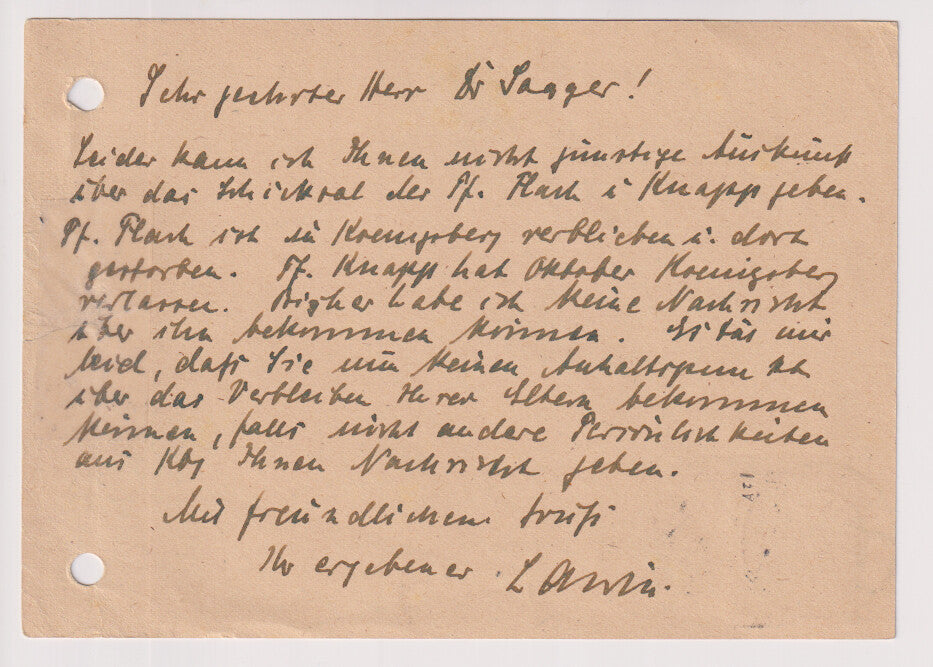 Sehr geehrter Herr Dr Saager!
Leider kann ich Ihnen nicht günstige Auskunft
über das Schicksal der Pf. Flach u Knapp geben.
Pf. Flach ist in Koenigsberg verblieben u. dort
gestorben. Pf. Knapp hat Oktober Koenigsberg
verlassen. Bisher habe ich keine Nachricht
über ihn bekommen können. Es tut mir
leid, daß Sie nun keinen Anhaltspunkt
über das Verbleiben Ihrer Eltern bekommen
können, falls nicht andere Persönlichkeiten
aus Kbg Ihnen Nachricht geben.
Mit freundlichem Gruß
Ihr ergebener L